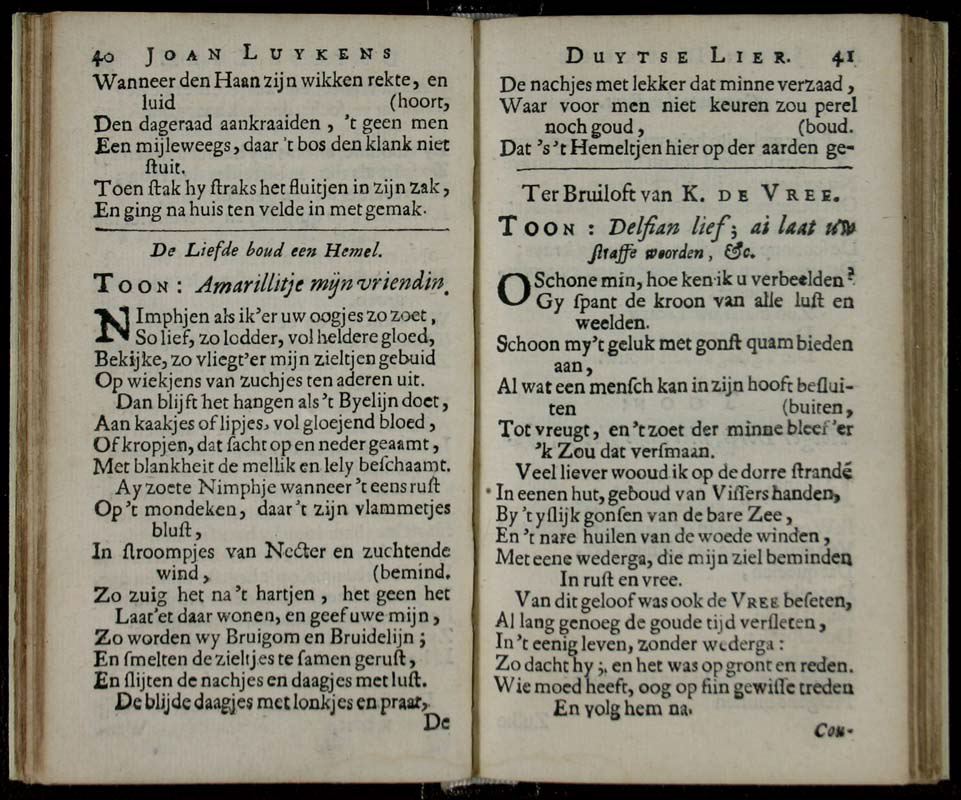 40 JOAN LUYKENS
Wanneer den Haan zijn wikken rekte, en
luid (hoort,
Den dageraad aankraaiden, 't geen men
Een mijleweegs, daar 't bos den klank niet
ſtuit.
Toen ſtak hy ſtraks het fluitjen in zijn zak,
En ging na huis ten velde in met gemak.
De Liefde boud een Hemel.
TOON: Amarillitje mijn vriendin.
NImphjen als ik'er uw oogjes zo zoet,
So lief, zo lodder, vol heldere gloed,
Bekijke, zo vliegt'er mijn zieltjen gebuid
Op wiekjens van zuchjes ten aderen uit.
Dan blijft het hangen als 't Byelijn doet,
Aan kaakjes of lipjes, vol gloejend bloed,
Of kropjen, dat ſacht op en neder geaamt,
Met blankheit de mellik en lely beſchaamt.
Ay zoete Nimphje wanneer 't eens ruſt
Op 't mondeken, daar 't zijn vlammetjes
bluſt,
In ſtroompjes van Necter en zuchtende
wind, (bemind.
Zo zuig het na 't hartjen, het geen het
Laat'et daar wonen, en geef uwe mijn,
Zo worden wy Bruigom en Bruidelijn;
En ſmelten de zieltjes te ſamen geruſt,
En ſlijten de nachjes en daagjes met luſt.
De blijde daagjes met lonkjes en praat,
De
DUYTSE LIER. 41
De nachjes met lekker dat minne verzaad,
Waar voor men niet keuren zou perel
noch goud, (boud.
Dat 's 't Hemeltjen hier op der aarden ge-
Ter Bruiloft van K. DE VREE.
TOON: Delfian lief; ai laat uw
ſtraffe woorden, &c.
O Schone min, hoe ken ik u verbeelden?
Gy ſpant de kroon van alle luſt en
weelden.
Schoon my't geluk met gonſt quam bieden
aan,
Al wat een menſch kan in zijn hooft beſlui-
ten (buiten,
Tot vreugt, en 't zoet der minne bleef 'er
'k Zou dat verſmaan.
Veel liever wooud ik op de dorre ſtrande
In eenen hut, geboud van Viſſers handen,
By 't yſlijk gonſen van de bare Zee,
En 't nare huilen van de woede winden,
Met eene wederga, die mijn ziel beminden
In ruſt en vree.
Van dit geloof was ook de VREE beſeten,
Al lang genoeg de goude tijd verſleten,
In 't eenig leven, zonder wederga:
Zo dacht hy; en het was op gront en reden.
Wie moed heeft, oog op ſiin gewiſſe treden
En volg hem na.
Cou-